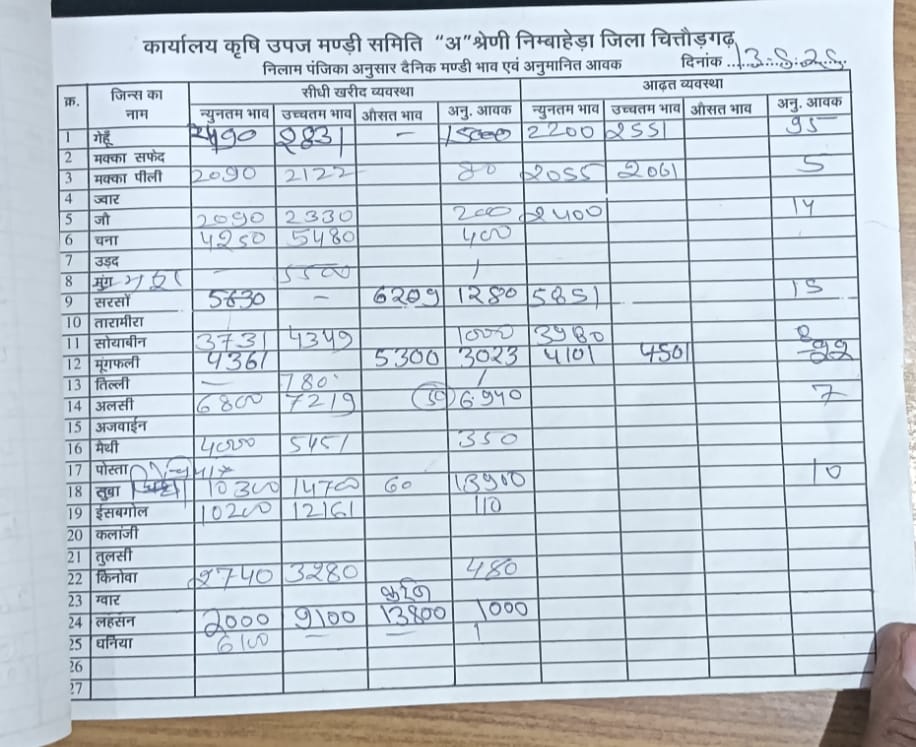 कार्यालय कृषि उपज मण्डी समिति "अ" श्रेणी निम्बाहेड़ा जिला चित्तौड़गढ़
निलाम पंजिका अनुसार दैनिक मण्डी भाव एवं अनुमानित आवक दिनांक 13.5.25
क्र. जिन्स का नाम सीधी खरीद व्यवस्था आढ़त व्यवस्था
न्युनतम भाव उच्चतम भाव औसत भाव अनु. आवक न्युनतम भाव उच्चतम भाव औसत भाव अनु. आवक
1 गेहूँ 2490 2831 – 15000 2200 2551 95
2 मक्का सफेद
3 मक्का पीली 2090 2122 80 2055 2061 5
4 ज्वार
5 जौ 2090 2330 200 2400 14
6 चना 4250 5480 400
7 उड़द
8 मुंग – 5500 1
9 सरसों 5830 – 6209 1280 5851 15
10 तारामीरा
11 सोयाबीन 3731 4349 1000 3980
12 मूंगफली 4361 5300 3023 4101 4501 22
13 तिल्ली – 780 1
14 अलसी 6800 7219 6940 7
15 अजवाईन
16 मैथी 4000 5451 350
17 पोस्ता
18 तुबा 10300 14700 60 13900 10
19 ईसबगोल 10200 12161 110
20 कलांजी
21 तुलसी
22 किनोवा 2740 3280 480
23 ग्वार
24 लहसन 2000 9100 13800 1000
25 धनिया 6100 – – 1
26
27